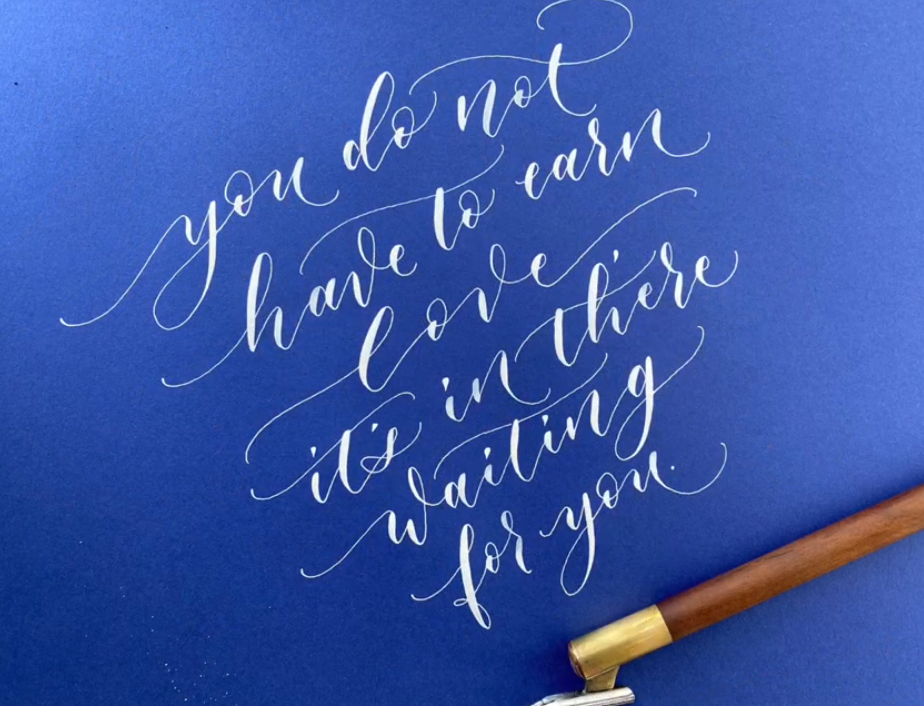 you do not
have to earn
love
it's in there
waiting
for you.